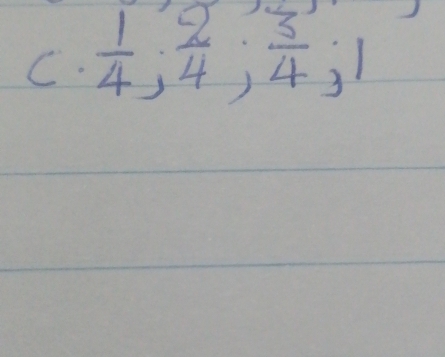 c. 1/4 ; 2/4 ; 3/4 ; 1